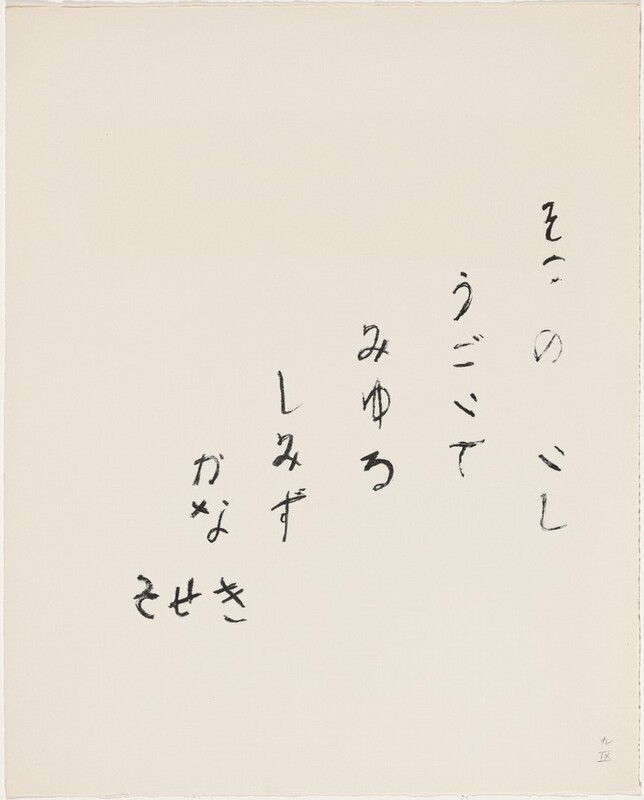 そこの いし
うごいて
みゆる
しみず
かな
そせき
九
IX